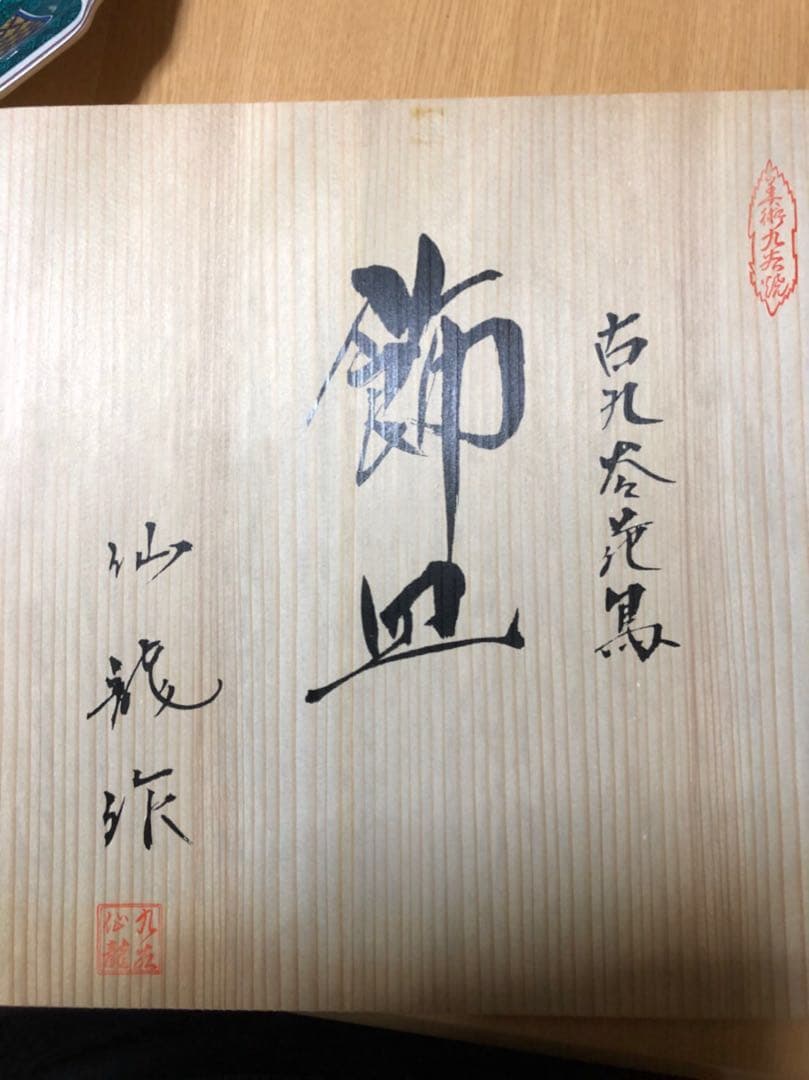 美術九谷焼
古九谷花鳥
飾皿
仙龍作
九谷
仙龍